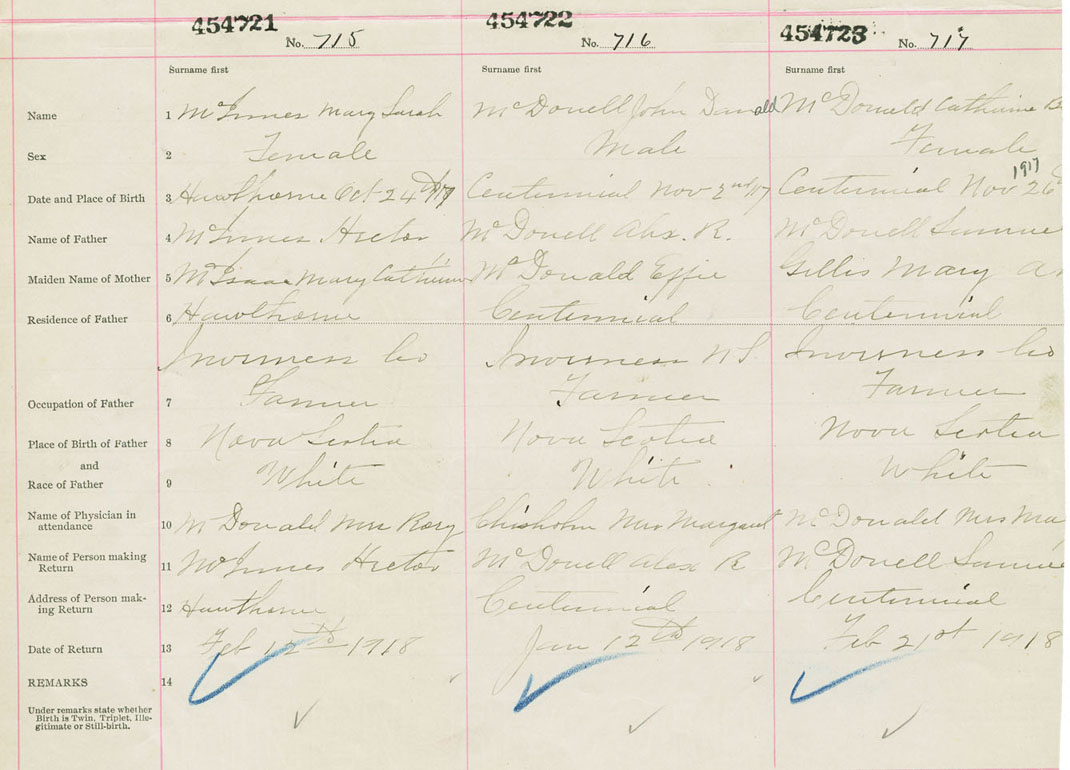 454721 454722 454723
No. 715 No. 716 No. 717
Surname first Surname first Surname first
Name 1 McInnes Mary Sarah McDonell John Donald McDonald Catharine
Sex 2 Female Male Female
1917
Date and Place of Birth 3 Hawthorne Oct 24th 17 Centennial Nov 2nd 17 Centennial Nov 26
Name of Father 4 McInnes Hector McDonell Alex. R. McDonell Samue
Maiden Name of Mother 5 McIsaac Mary Catherine McDonald Effie Gillis Mary A
Residence of Father 6 Hawthorne Centennial Centennial
Inverness Co Inverness N S. Inverness Co
Occupation of Father 7 Farmer Farmer Farmer
Place of Birth of Father 8 Nova Scotia Nova Scotia Nova Scotia
and
Race of Father 9 White White White
Name of Physician in
attendance 10 McDonald Mrs Rory Chisholm Mrs Margaret McDonald Mrs Ma
Name of Person making
Return 11 McInnes Hector McDonell Alex R McDonell Samue
Address of Person mak-
ing Return 12 Hawthorne Centennial Centennial
Date of Return 13 Feb 12th 1918 Jan 12th 1918 Feb 21st 1918
REMARKS 14
Under remarks state whether
Birth is Twin, Triplet, Ille-
gitimate or Still-birth.